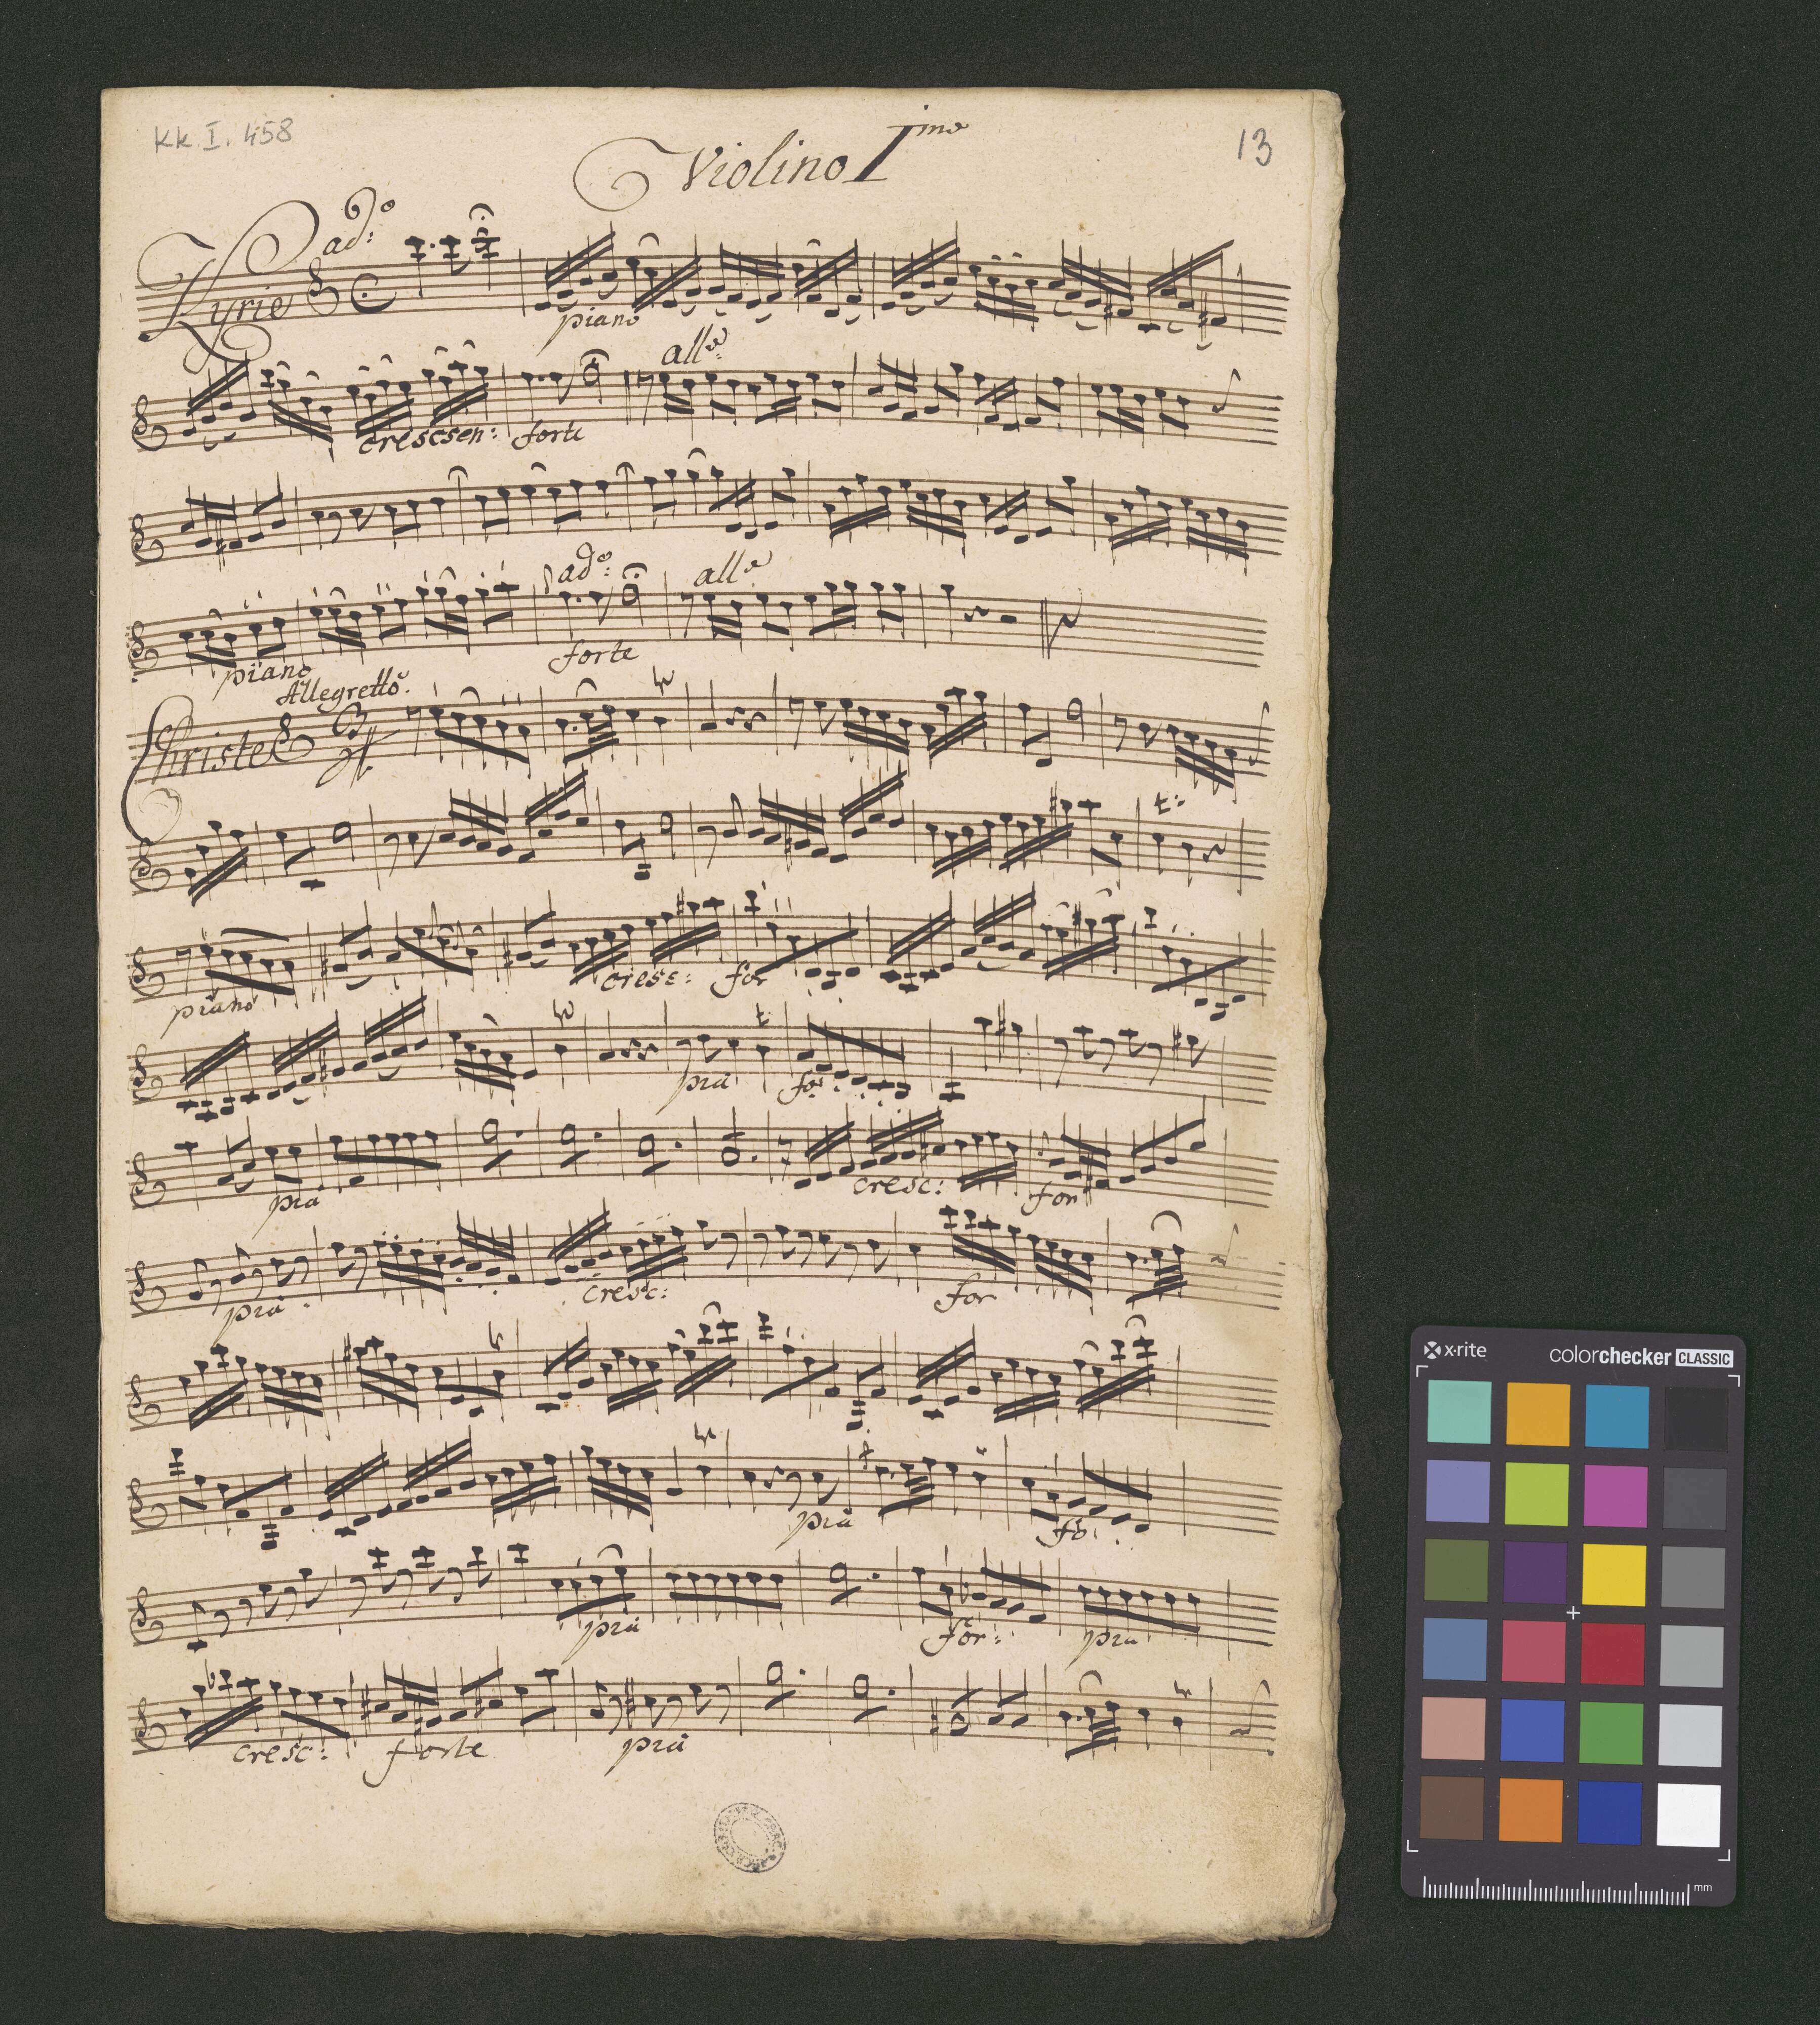 Kk. I. 458
Violino Imo
13
Kyrie
ado:
piano
allo:
crescsen: forte
ado: allo
piano forte
Allegretto.
Christe
t:
piano cresc: for
t
pia fo:
pia cresc: for
pia cresc: for
pia fo:
pia for: pia
cresc: forte pia
x·rite colorchecker CLASSIC
mm